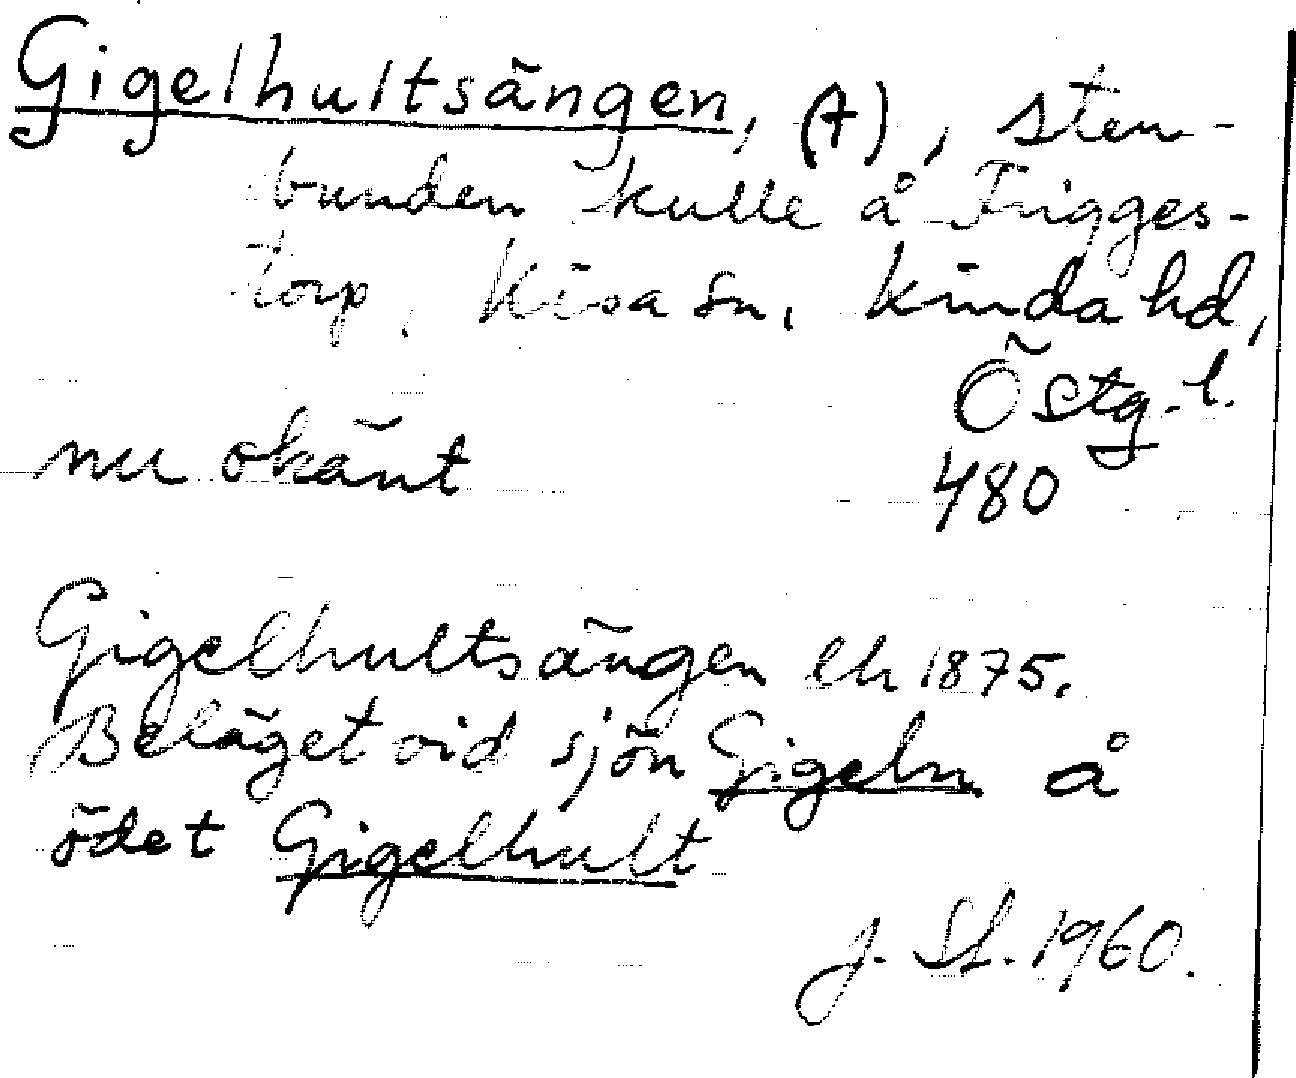 Gigelhultsängen, (A), sten-
bunden kulle å Frigges-
torp, Kisa sn, Kinda hd,
Östg. l.
nu okänt
480
Gigelhultsängen lh 1875.
Beläget vid sjön Gigeln å
ödet Gigelhult
J. Sl. 1960.